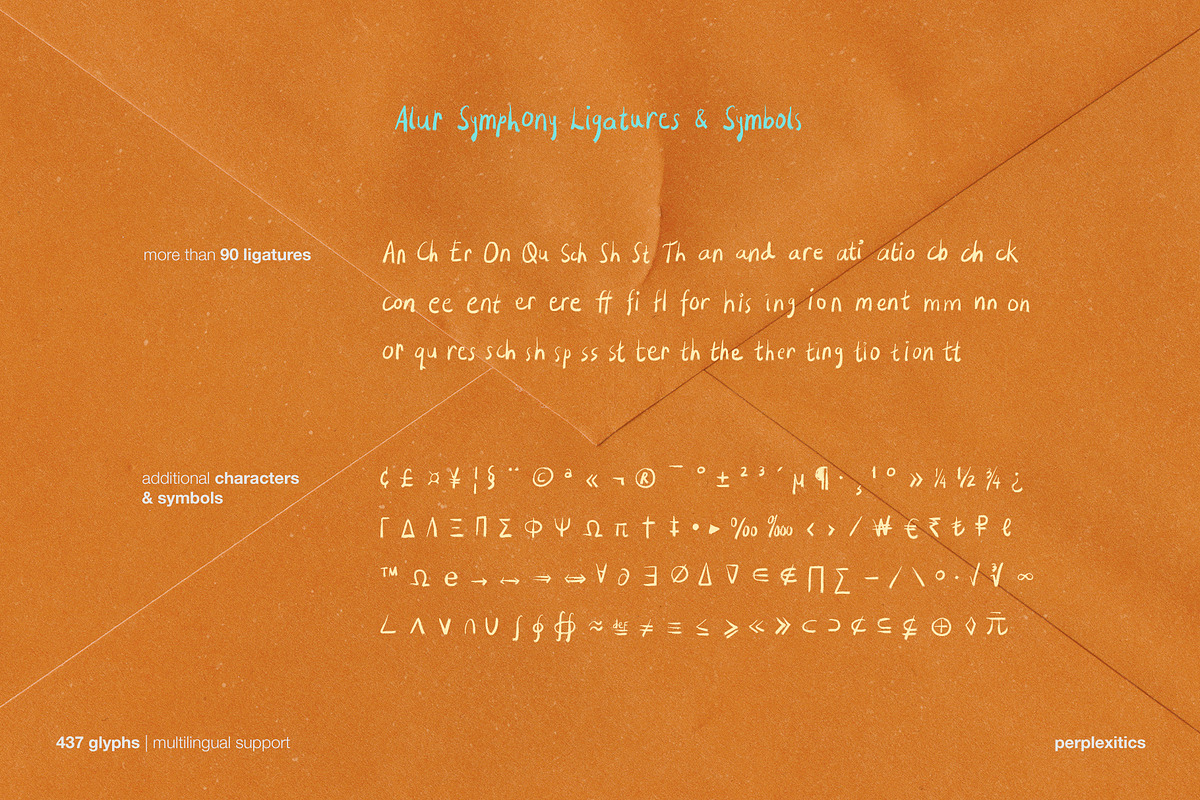 Alur Symphony Ligatures & Symbols
more than 90 ligatures
An Ch Er On Qu Sch Sh St Th an and are ati atio cb ch ck
con ee ent er ere ff fi fl for his ing ion ment mm nn on
or qu res sch sh sp ss st ter th the ther ting tio tion tt
additional characters
& symbols
¢ £ ¤ ¥ ¦ § ¨ © ª « ¬ ® ¯ ° ± ² ³ ´ µ ¶ · ¸ ¹ º » ¼ ½ ¾ ¿
Γ Δ Λ Ξ Π Σ Φ Ψ Ω π † ‡ • ‣ ‰ ‱ ‹ › ⁄ ₩ € ₹ ₺ ₽ ℓ
™ Ω ℮ → ↔ ⇒ ⇔ ∀ ∂ ∃ ∅ ∆ ∇ ∈ ∉ ∏ ∑ − ∕ ∖ ∘ ∙ √ ∛ ∞
∟ ∧ ∨ ∩ ∪ ∫ ∮ ∯ ≈ ≝ ≠ ≡ ≤ ≥ ≪ ≫ ⊂ ⊃ ⊄ ⊆ ⊈ ⊕ ◊ ℼ
437 glyphs | multilingual support
perplexitics